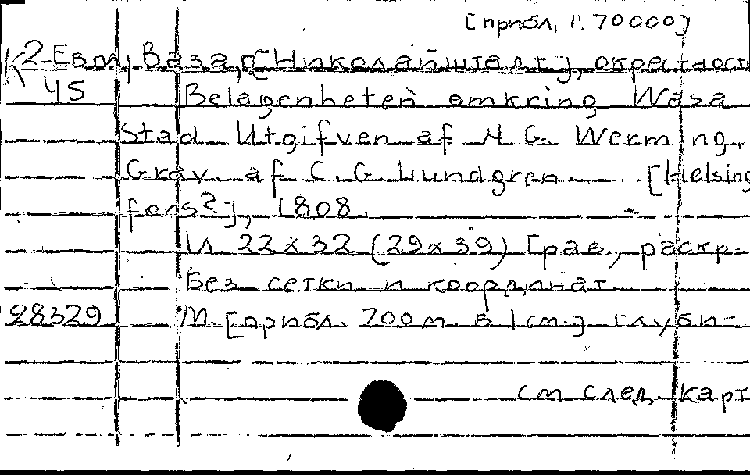 [прибл. 1:70000]
К 2-Евл, Ваза, [Николайштадт], окрестност
45 Belägenheten omkring Wasa
Stad Utgifven af N. G. Werming.
Grav. af C. G. Lundgren. [Helsing
fors?], 1808.
1 л. 22х32 (29х39) Грав., раскр.
Без сетки и координат
28329 М. [прибл. 700 м. в 1 см.] Глуби-
см след карт